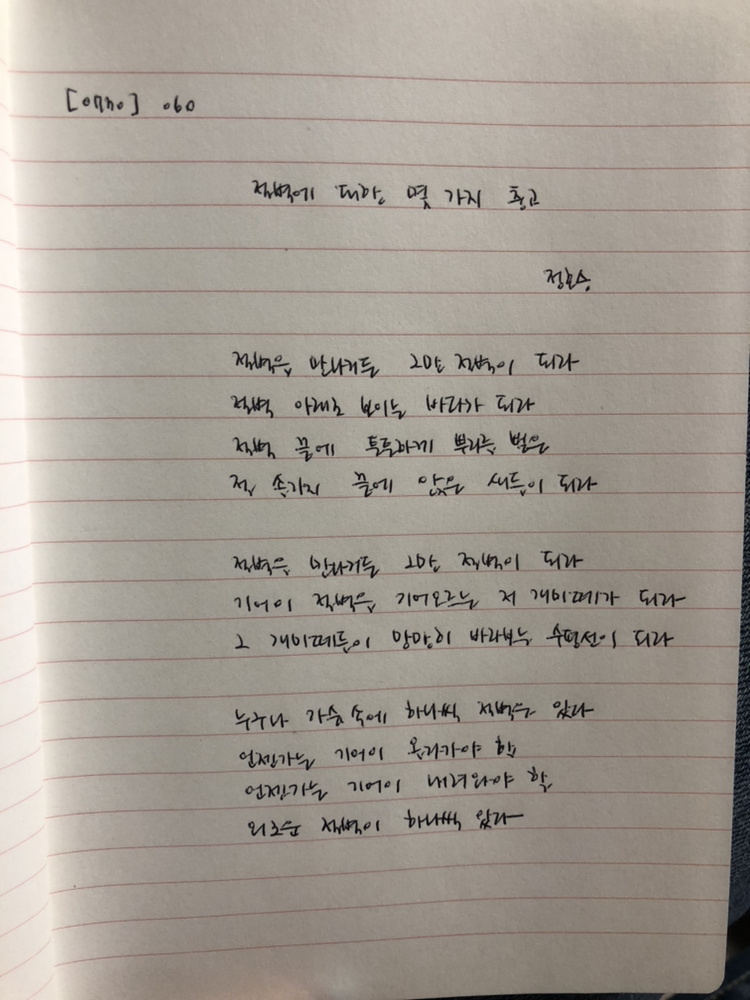 [0970] 060
절벽에 대한 몇 가지 충고
정호승
절벽을 만나거든 그만 절벽이 되라
절벽 아래로 보이는 바다가 되라
절벽 끝에 튼튼하게 뿌리를 벋은
저 솔가지 끝에 앉은 새들이 되라
절벽을 만나거든 그만 절벽이 되라
기어이 절벽을 기어오르는 저 개미떼가 되라
그 개미떼들이 망망히 바라보는 수평선이 되라
누구나 가슴 속에 하나씩 절벽은 있다
언젠가는 기어이 올라가야 할
언젠가는 기어이 내려와야 할
외로운 절벽이 하나씩 있다